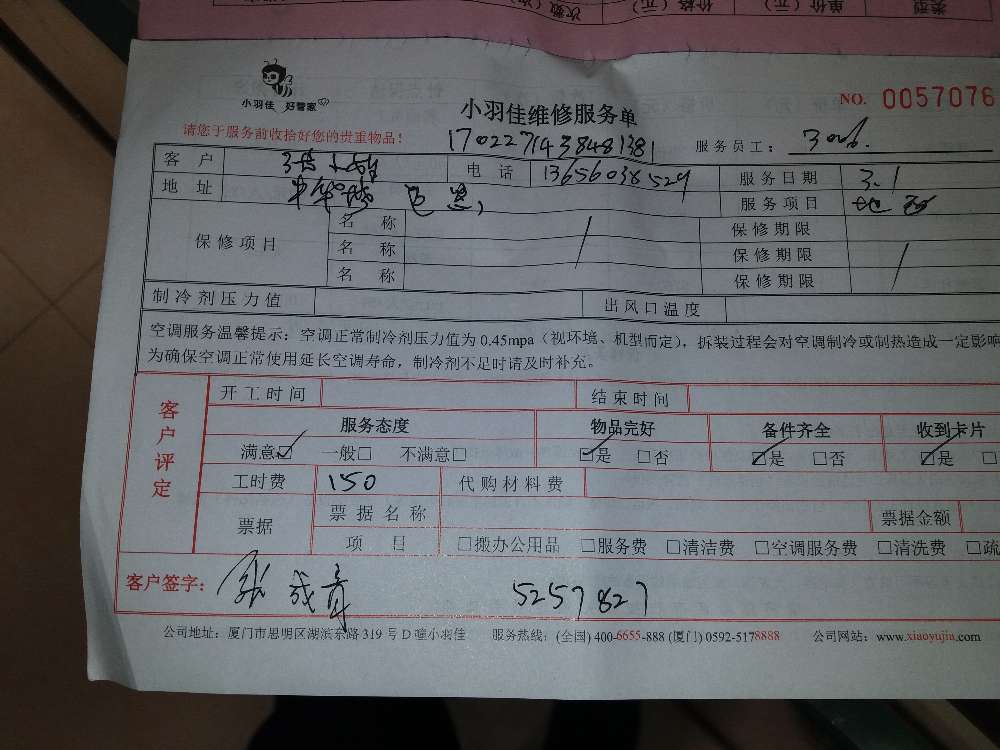 类型 单价（元） 价格（元） 次数（次）
小羽佳 好管家
小羽佳维修服务单
NO. 0057076
请您于服务前收拾好您的贵重物品！
17022714384 81381
服务员工：
客户 电话 13656038529 服务日期 3.1
地址 服务项目
保修项目 名称 保修期限
名称 保修期限
名称 保修期限
制冷剂压力值 出风口温度
空调服务温馨提示：空调正常制冷剂压力值为0.45mpa（视环境、机型而定），拆装过程会对空调制冷或制热造成一定影响
为确保空调正常使用延长空调寿命，制冷剂不足时请及时补充。
客户评定
开工时间 结束时间
服务态度 物品完好 备件齐全 收到卡片
满意☑ 一般□ 不满意□ ☑是 □否 ☑是 □否 ☑是 □
工时费 150 代购材料费
票据 票据名称 票据金额
项目 □搬办公用品 □服务费 □清洁费 □空调服务费 □清洗费 □疏
客户签字： 张成章 5257827
公司地址：厦门市思明区湖滨东路319号D幢小羽佳 服务热线：(全国) 400-6655-888 (厦门) 0592-5178888 公司网站：www.xiaoyujia.com